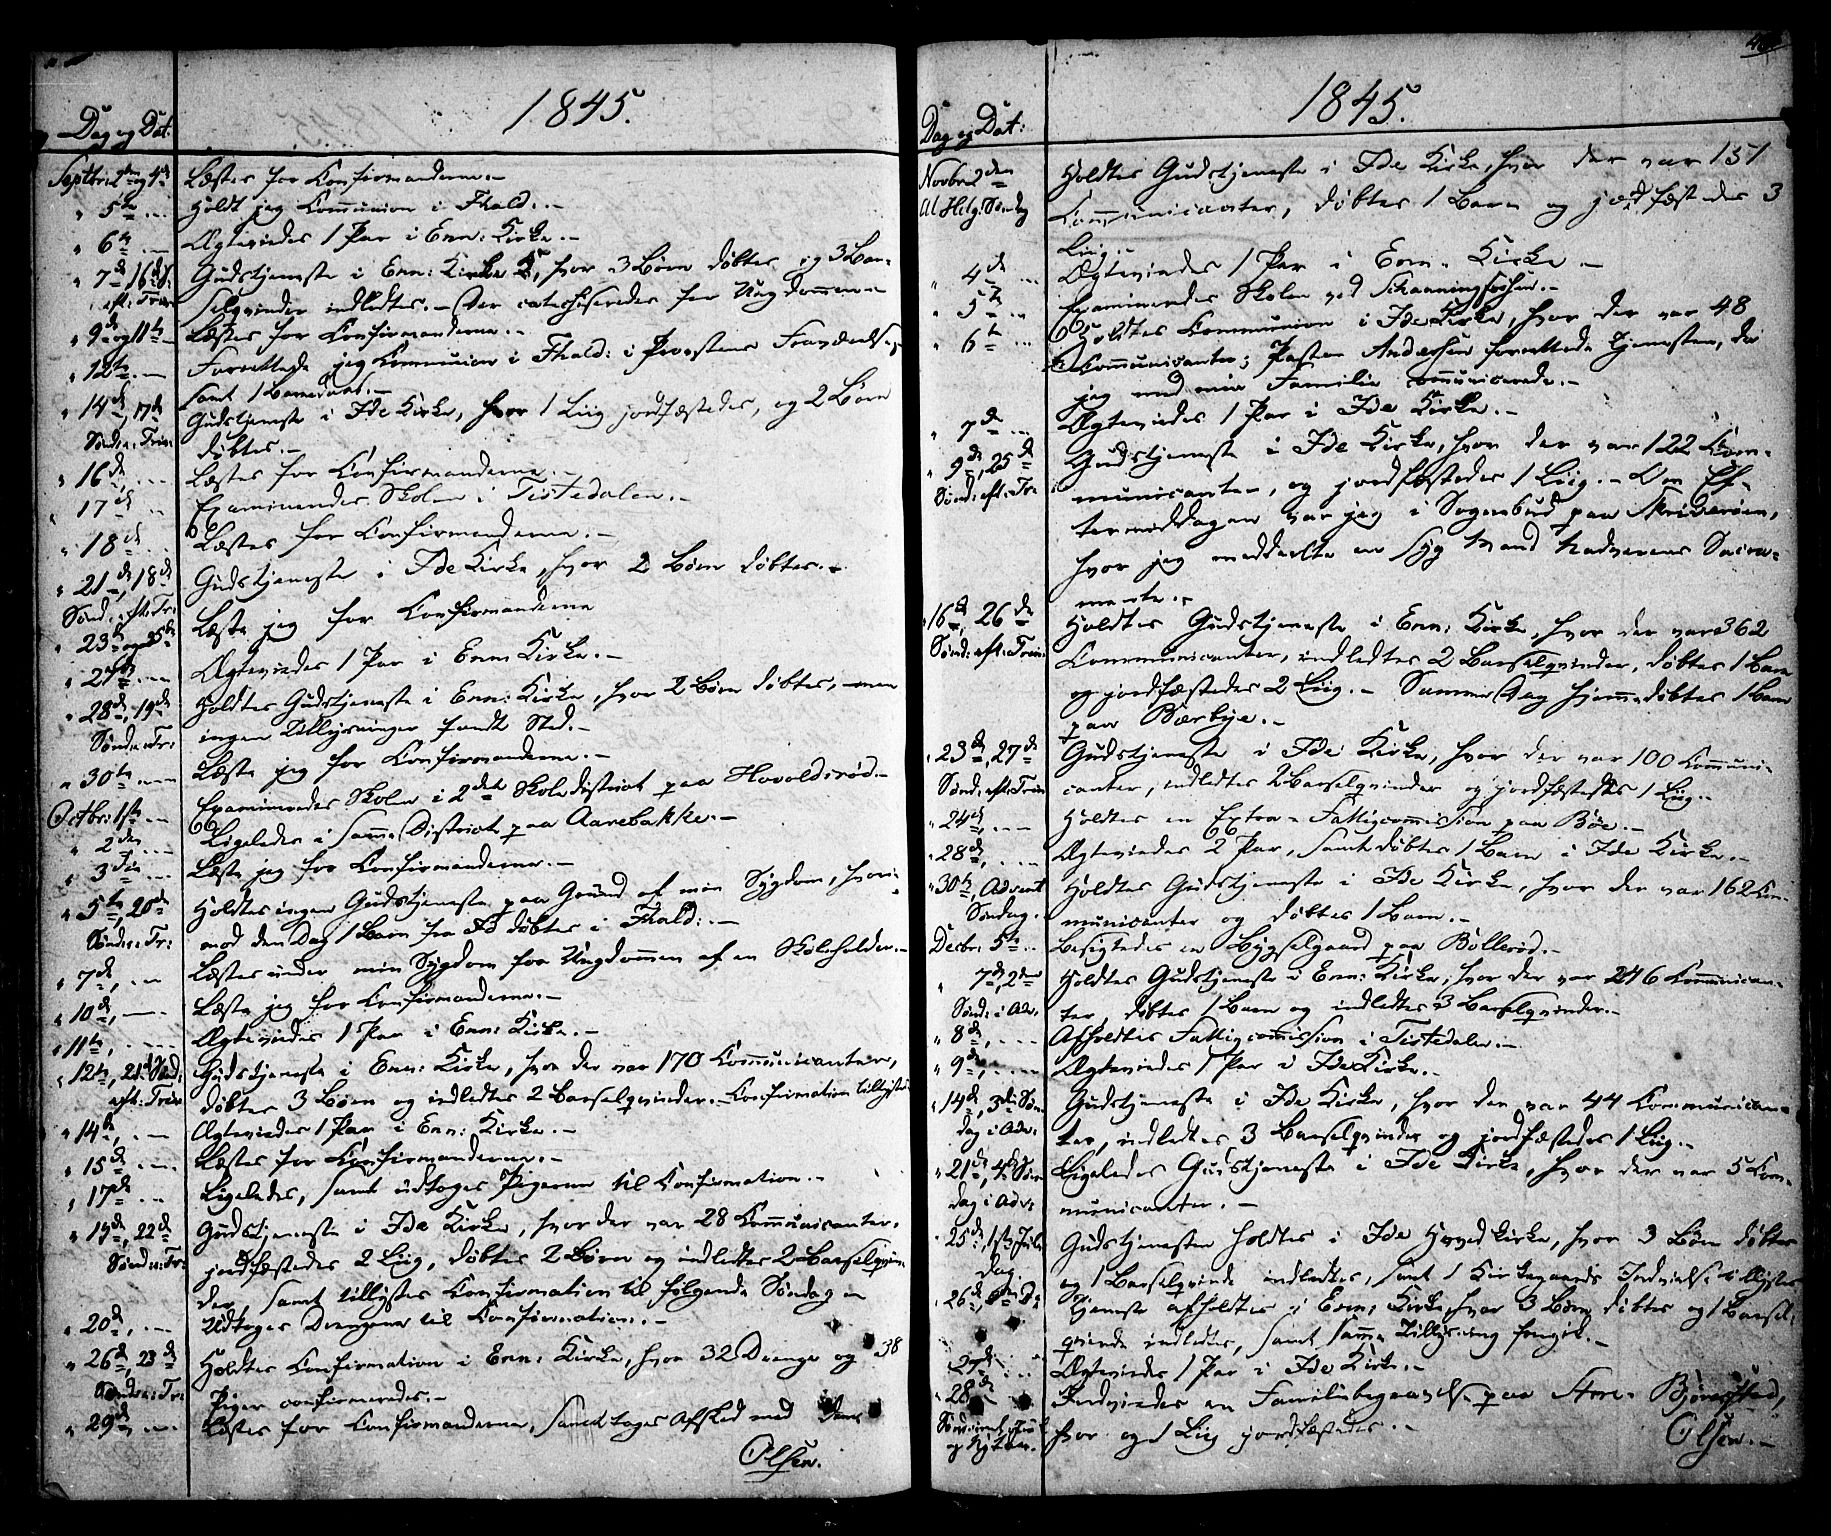 1845.
Dag og Dat:
Septbr: 2den og 4de Læstes for Confirmanderne.-
" 5te ... Holdt jeg Communion i Fhald:.-
" 6te ... Ægteviedes 1 Par i Enn: Kirke.-
" 7de, 16de S: Gudstjeneste i Enn: Kirke, hvor 3 Børn døbtes og 3 Bar-
eft: Trin: selqvinder indledtes.- Der catechiseredes for Ungdommen.-
" 9de og 11te Læstes for Confirmanderne.-
" 12te ... Forrettede jeg Communion i Fhald: i Provstens Fraværelse,
samt 1 Barnedaab.-
" 14de, 17de Gudstjeneste i Ide Kirke, hvor 1 Liig jordfæstedes, og 2 Børn
Sønd: e: Trin: døbtes.-
" 16de, ... Læstes for Confirmanderne.-
" 17de ... Examinerdes Skolen i Tistedalen.-
" 18de ... Læstes for Confirmanderne.-
" 21de, 18de Gudstjeneste i Ide Kirke, hvor 2 Børn døbtes.-
Sønd: eft: Tr:
" 23de og 25de Læste jeg for Confirmanderne
" 27de ... Ægteviedes 1 Par i Enn: Kirke.-
" 28de, 19de Holdtes Gudstjeneste i Enn: Kirke, hvor 2 Børn døbtes, men
Sønd: e: Tr: ingen Tillysninger fandt Sted.-
" 30te ... Læste jeg for Confirmanderne.-
Octbr: 1ste ... Examinerdes Skolen i 2det Skoledistrict paa Havoldsrød.-
" 2den ... Ligeledes i samme District paa Aarebakke.-
" 3die ... Læste jeg for Confirmanderne.-
" 5te, 20de Holdtes ingen Gudstjeneste paa Grund af min Sygdom, hvori-
Sønd: e: Tr: mod den Dag 1 Barn fra Id døbtes i Fhald:.-
" 7de, ... Læstes under min Sygdom for Ungdommen af en Skoleholder.-
" 10de, ... Læste jeg for Confirmanderne.-
" 11te, ... Ægteviedes 1 Par i Enn: Kirke.-
" 12te, 21de Sønd: Gudstjeneste i Enn: Kirke, hvor der var 170 Communicanter,
eft: Trin døbtes 3 Børn og indledtes 2 Barselqvinder.- Confirmation tillystes
" 14de, ... Ægteviedes 1 Par i Enn: Kirke.-
" 15de ... Læstes for Confirmanderne.-
" 17de ... Ligeledes, samt udtoges Pigerne til Confirmation.-
" 19de, 22de Gudstjeneste i Ide Kirke, hvor der var 28 Communicanter,
Sønd: e: Tr: jordfæstedes 2 Liig, døbtes 2 Børn og indledtes 2 Barselqvin-
der, samt tillystes Confirmation til følgende Søndag
" 20de, ... Udtoges Drengene til Confirmation.-
" 26de, 23de Holdtes Confirmation i Enn: Kirke, hvor 32 Drenge og 38
Sønd: e: Tr: Piger confirmeredes.-
" 29de ... Læstes for Confirmanderne, samt toges Afsked med dem.
Olsen.
1845.
Dag og Dat:
Novbr: 2den Holdtes Gudstjeneste i Ide Kirke, hvor der var 151
Al. Helg: Søndag Communicanter, døbtes 1 Barn og jordfæstedes 3
Liig.
" 4de ... Ægteviedes 1 Par i Enn: Kirke.-
" 5te ... Examinerdes Skolen ved Schanningfossen.-
" 6te ... Holdtes Communion i Ide Kirke, hvor der var 48
Communicanter; Pastor Anderssen forrettede Tjenesten, da
jeg med min Familie communicerede.-
" 7de ... Ægteviedes 1 Par i Ide Kirke.-
" 9de, 25de Gudstjeneste i Ide Kirke, hvor der var 122 Com-
Sønd: eft: Tr: municanter, og jordfæstedes 1 Liig.- Om Ef-
termiddagen var jeg i Sognebud paa
hvor jeg meddeelte en syg Mand Nadverens Sacra-
mente.-
" 16de, 26de Holdtes Gudstjeneste i Enn: Kirke, hvor der var 362
Sønd: eft: Trin: Communicanter, indledtes 2 Barselqvinder, døbtes 1 Barn
og jordfæstedes 2 Liig.- Samme Dag hjemmedøbtes 1 Barn
paa Bærbye.-
" 23de, 27de Gudstjeneste i Ide Kirke, hvor der var 100 Communi-
Sønd: eft: Trin canter, indledtes 2 Barselqvinder og jordfæstedes 1 Liig.-
" 24de, ... Holdtes en Extra-Fattigcommission paa Bøe.-
" 28de, ... Ægteviedes 2 Par, samt døbtes 1 Barn i Ide Kirke.-
" 30te, Advent Holdtes Gudstjeneste i Ide Kirke, hvor der var 162 Com-
Søndag. municanter og døbtes 1 Barn.-
Decbr: 5te ... Besigtedes en Bøxelgaard paa Bollerød.-
" 7de, 2den Holdtes Gudstjeneste i Enn: Kirke, hvor der var 246 Communican-
Sønd: i Adv. ter, døbtes 1 Barn og indledtes 3 Barselqvinder.-
" 8de, ... Afholdtes Fattigcommission i Tistedalen.-
" 9de, ... Ægteviedes 1 Par i Ide Kirke.-
" 14de, 3die Søn- Gudstjeneste i Ide Kirke, hvor der var 44 Communican-
dag i Adv: ter, indledtes 3 Barselqvinder og jordfæstedes 1 Liig.-
" 21de, 4de Søn- Ligeledes Gudstjeneste i Ide Kirke, hvor der var 5 Com-
dag i Adv: municanter.-
" 25de, 1ste Jule- Gudstjenesten holdtes i Ide Hovedkirke, hvor 3 Børn døbtes
dag og 1 Barselqvinde indledtes, samt 1 Kirkegaards Indvielse tillystes
" 26de, 2den D: Tjeneste afholdtes i Enn: Kirke, hvor 3 Børn døbtes og 1 Barsel-
qvinde indledtes, samt samme Tillysning foregik.-
" 27de ... Ægteviedes 1 Par i Ide Kirke.-
" 28de ... Indviedes en Familiebegravelse paa Store-Bjørnstad,
Sønd: ml: Juul og Nytaar. hvor og 1 Liig jordfæstedes.-
Olsen.-